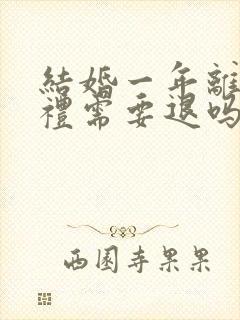 結婚一年離
禮需要退嗎
西園寺果果